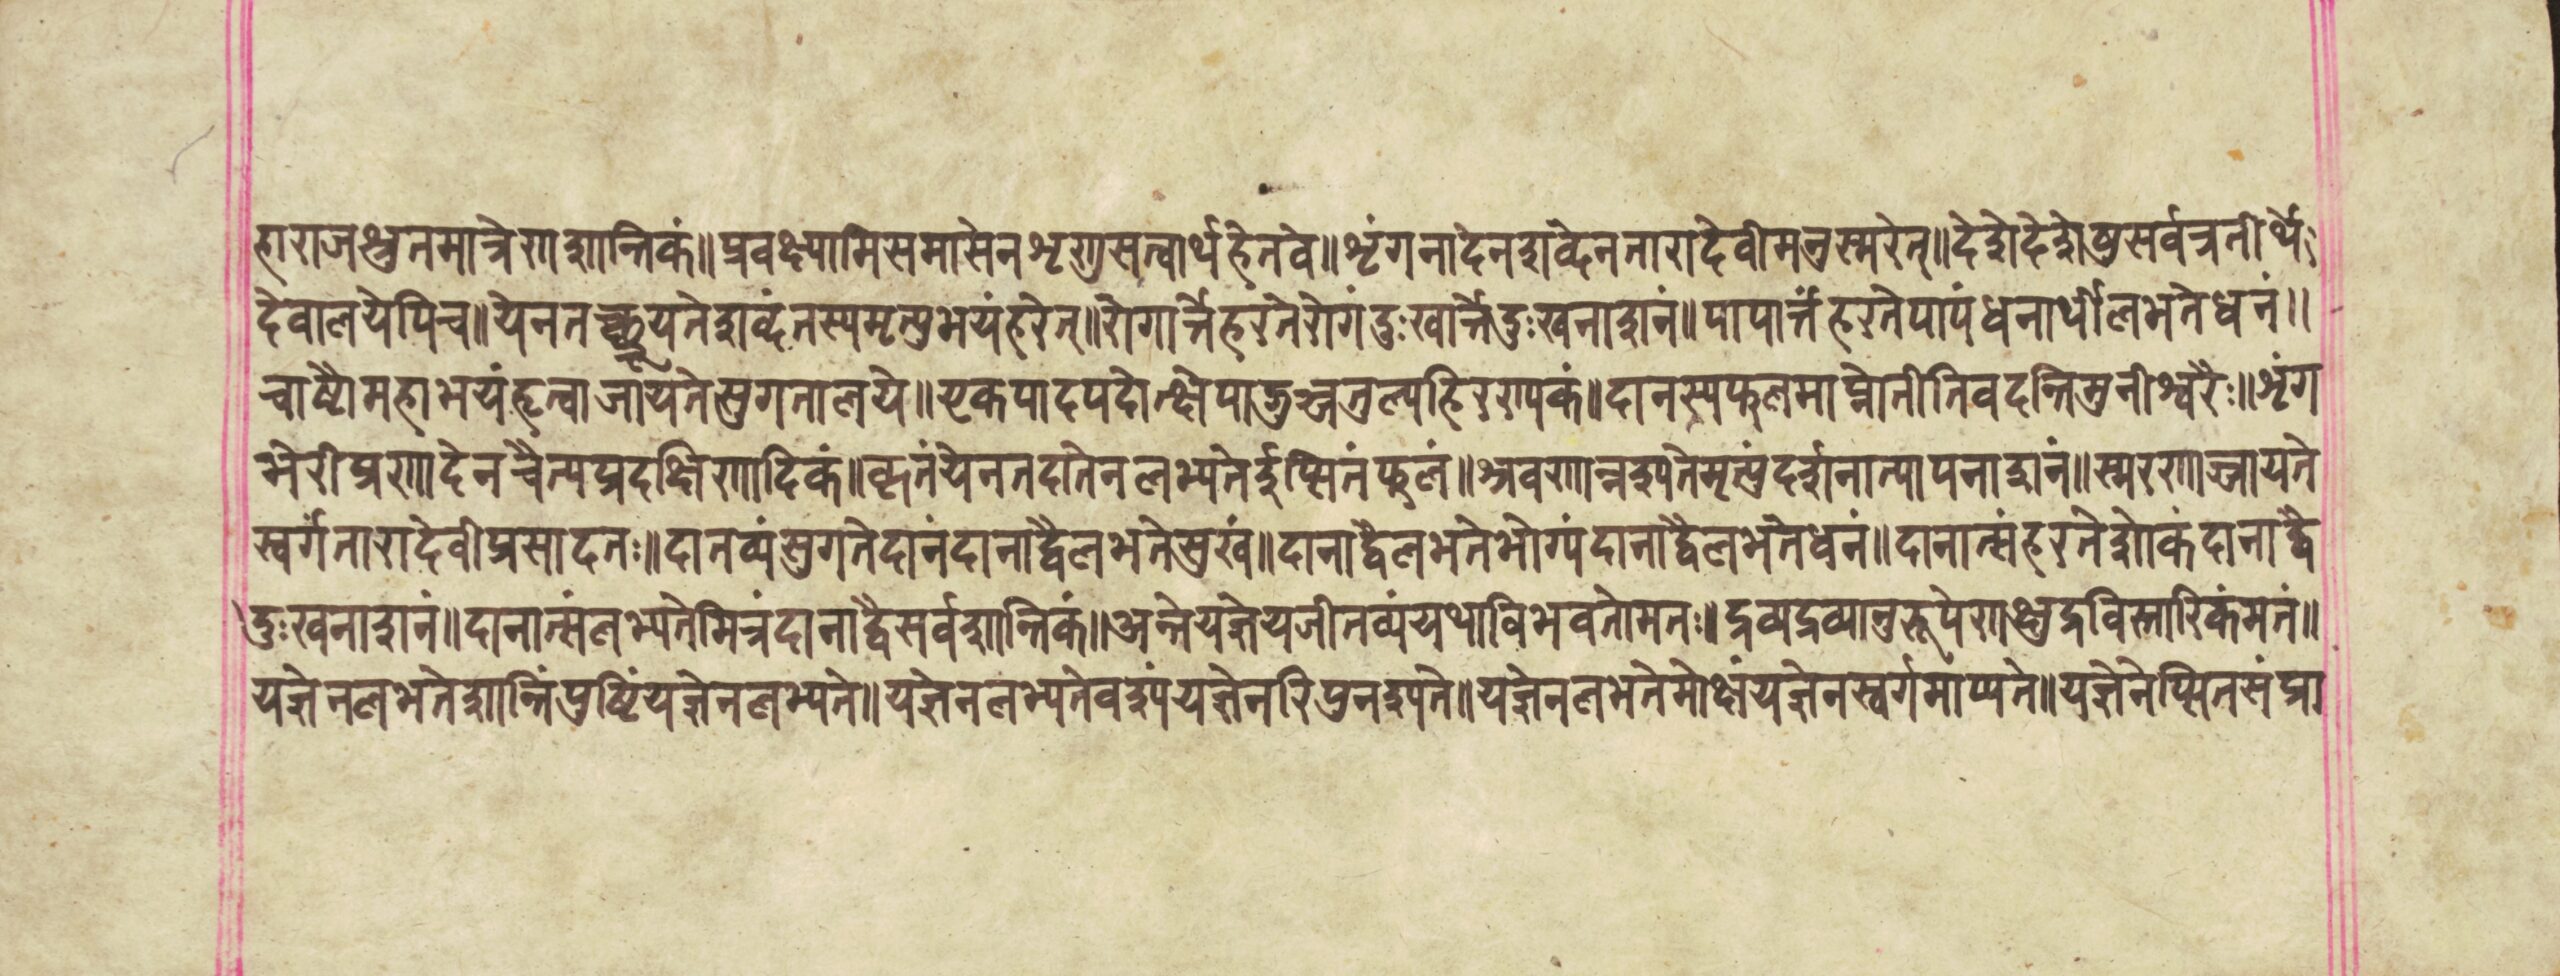 हाराजश्रुतमात्रेणशान्तिकं॥प्रवक्ष्यामिसमासेनशृणुसत्वार्थहेतवे॥शृंगनादेनशब्देनतारादेवीमनुस्मरेत्॥देशेदेशेषुसर्वत्रतीर्थे
देवालयेपिच॥येनतच्छ्रूयतेशब्दंतस्यमृत्युभयंहरेत्॥रोगार्त्तेहरतेरोगंदुःखार्त्तेदुःखनाशनं॥पापार्त्तंहरतेपापंधनार्थीलभतेधनं॥
चाष्टौमहाभयंहृत्वाजायतेसुगतालये॥एकपादपदोत्क्षेपाद्भुञ्जतुल्यहिरण्यकं॥दानस्यफलमाप्नोतीतिवदन्तिमुनीश्वरैः॥शृंग
भेरीप्रणादेनचैत्यप्रदक्षिणादिकं॥कृतंयेनतदातेनलभ्यतेर्इप्सितंफलं॥श्रवणान्नश्यतेमृत्युंदर्शनात्पापनाशनं॥स्मरणाज्जायते
स्वर्गंतारादेवीप्रसादतः॥दातव्यंसुगतेदानंदानाद्वैलभतेसुखं॥दानाद्वैलभतेभोग्यंदानाद्वैलभतेधनं॥दानात्संहरतेशोकंदानाद्वै
दुःखनाशनं॥दानात्संलभ्यतेमित्रंदानाद्वैसर्वशान्तिकं॥अन्तेयज्ञेयजीतव्यंयथाविभवतोमनः॥द्रव्यद्रव्यानुरूपेणक्षुद्रविस्तारिकंमतं॥
यज्ञेनलभतेशान्तिंपुष्टिंयज्ञेनलभ्यते॥यज्ञेनलभ्यतेवश्यंयज्ञेनरिपुनश्यते॥यज्ञेनलभतेमोक्षंयज्ञेनस्वर्गमाप्यते॥यज्ञेनेप्सितसंप्रा